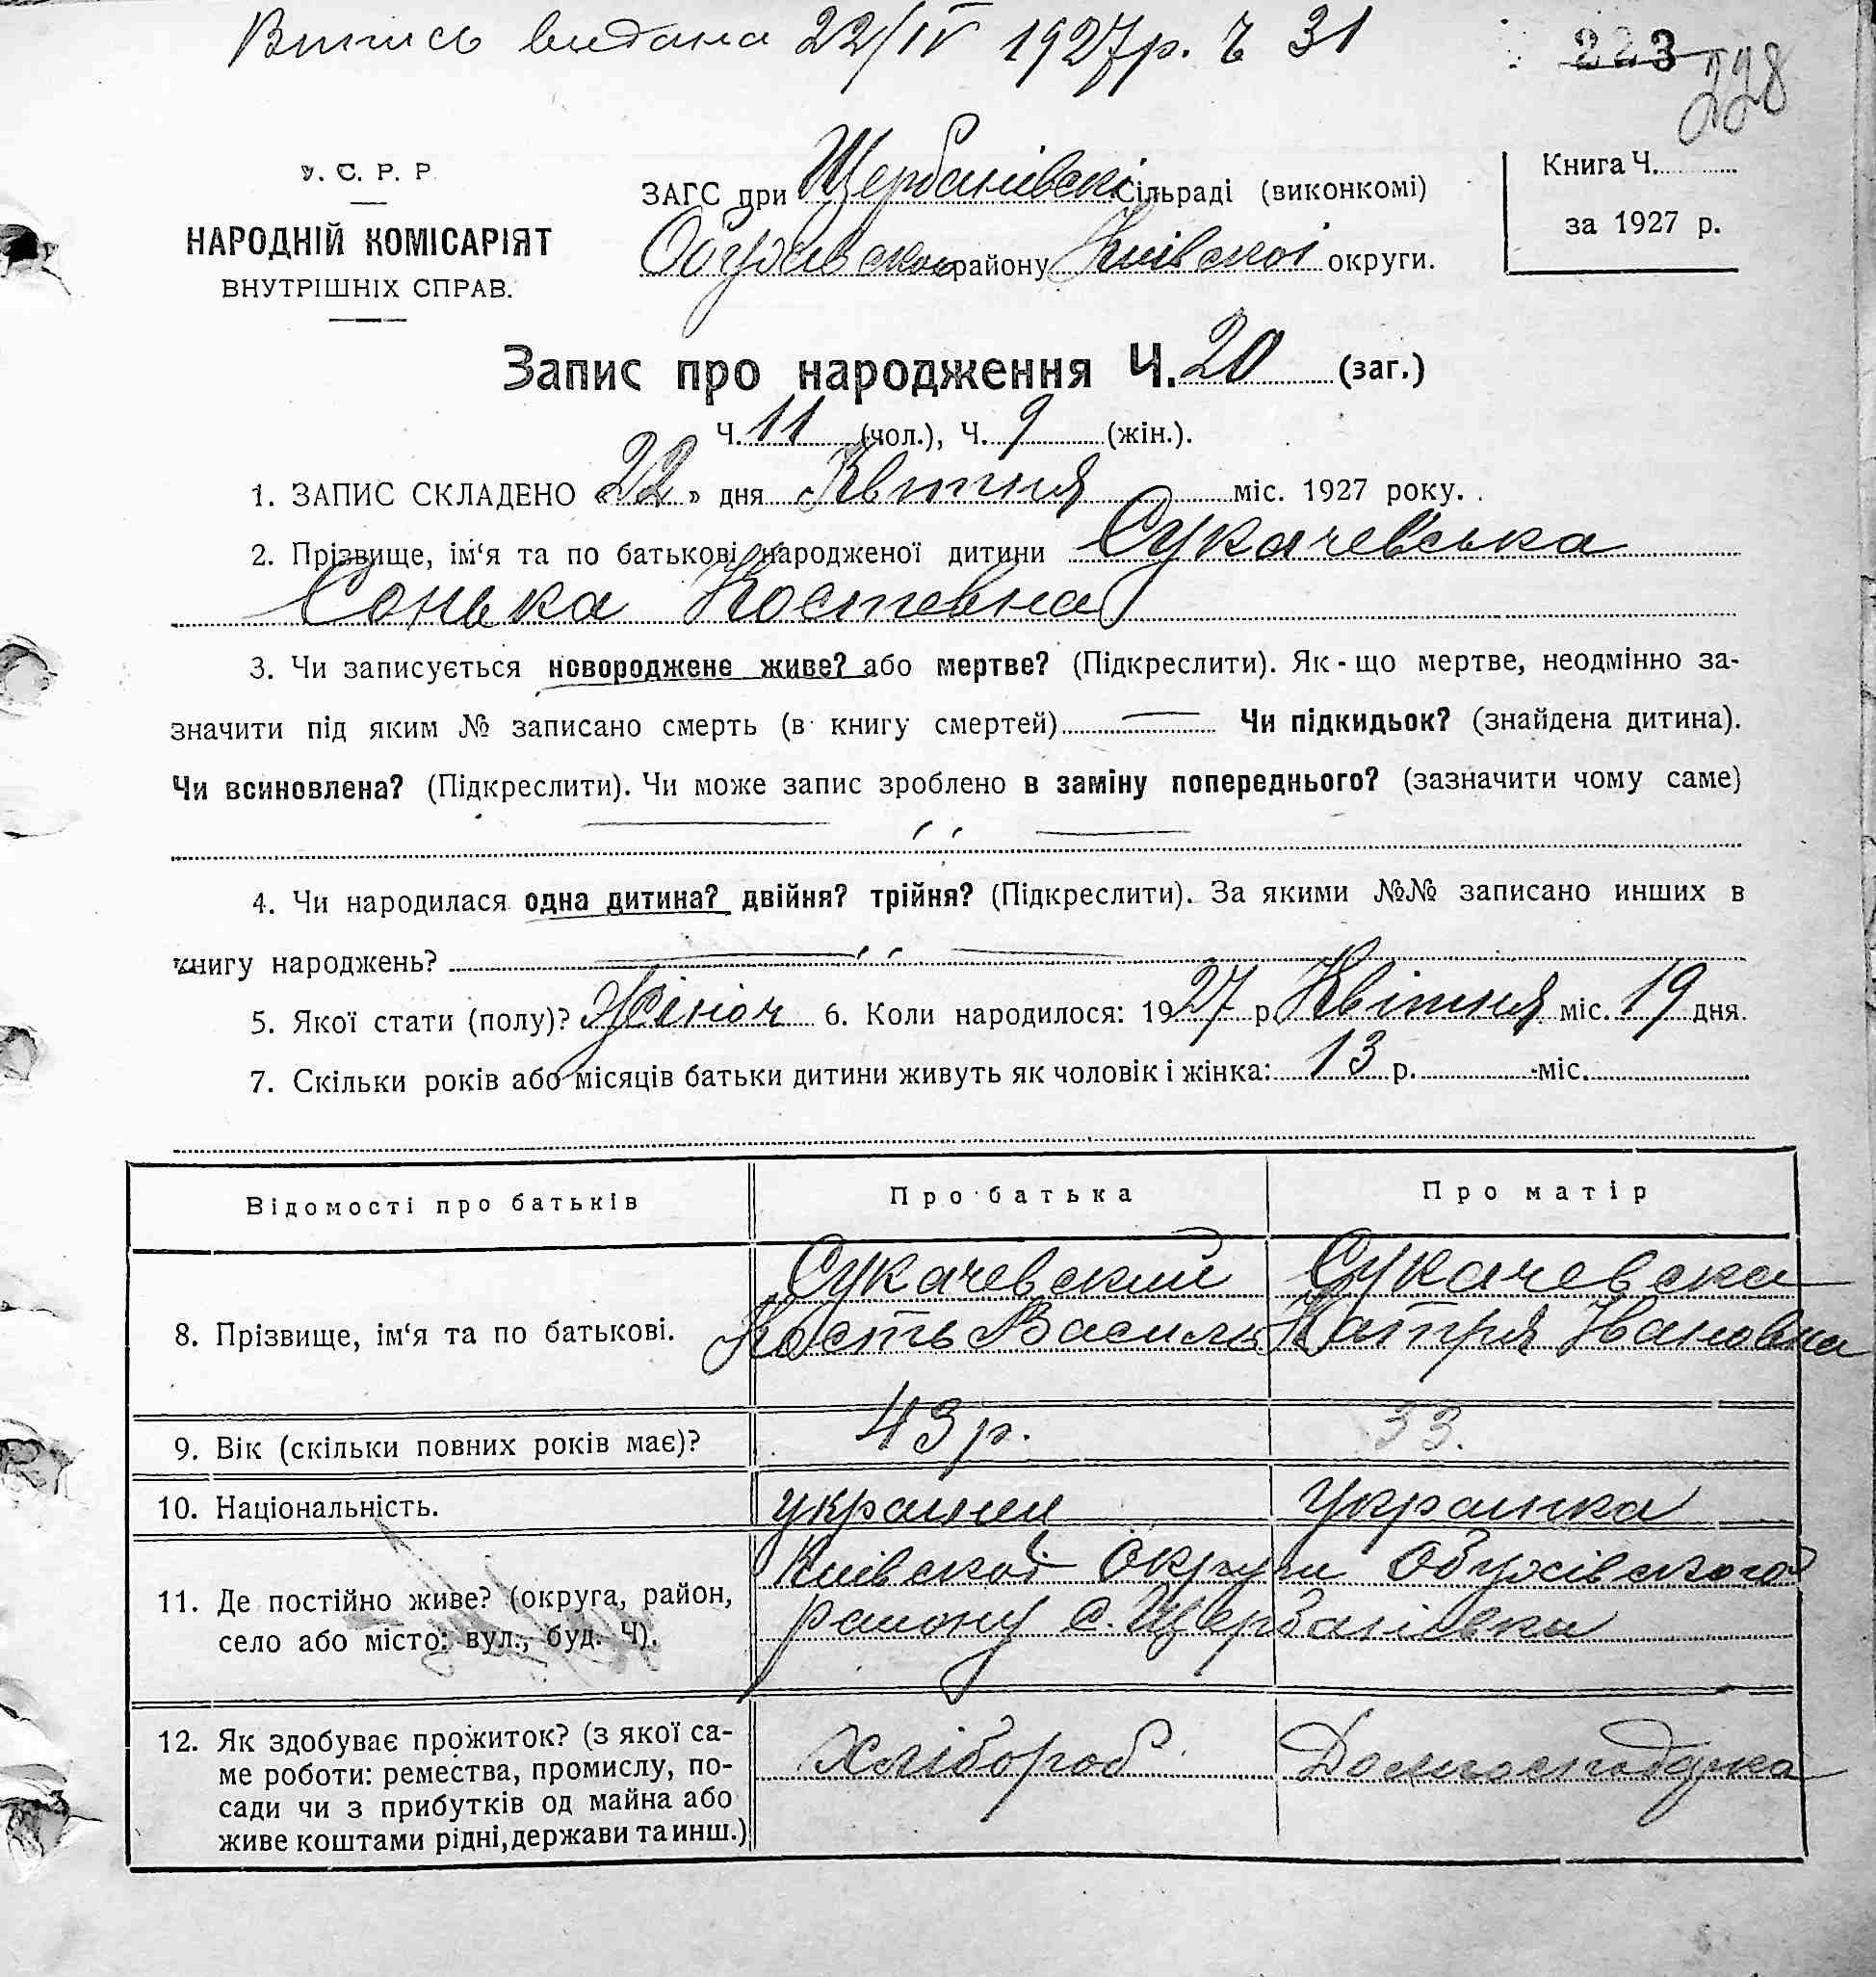 Випись видана 22/IV 1927 р. Ч 31
223 228
У. С. Р. Р.
НАРОДНІЙ КОМІСАРІЯТ
ВНУТРІШНІХ СПРАВ.
ЗАГС при Щербанівскі Сільраді (виконкомі)
району Киівскоі округи.
Книга Ч.
за 1927 р.
Запис про народження Ч. 20 (заг.)
Ч. 11 (чол.), Ч. 9 (жін.).
1. ЗАПИС СКЛАДЕНО «22» дня Квітня міс. 1927 року.
2. Прізвище, ім‘я та по батькові народженої дитини Сукачевська
Сонька Костевна
3. Чи записується новороджене живе? або мертве? (Підкреслити). Як-що мертве, неодмінно за-
значити під яким № записано смерть (в книгу смертей) Чи підкидьок? (знайдена дитина).
Чи всиновлена? (Підкреслити). Чи може запис зроблено в заміну попереднього? (зазначити чому саме)
4. Чи народилася одна дитина? двійня? трійня? (Підкреслити). За якими №№ записано инших в
книгу народжень?
5. Якої стати (полу)? Жіноч 6. Коли народилося: 1927 р. Квітня міс. 19 дня.
7. Скільки років або місяців батьки дитини живуть як чоловік і жінка: 13 р. міс.
Відомості про батьків Про батька Про матір
8. Прізвище, ім‘я та по батькові.
Сукачевский
Кость Василь
Сукачевска
Катря Ивановна
9. Вік (скільки повних років має)? 43 р. 33.
10. Національність. украинец Украинка
11. Де постійно живе? (округа, район,
село або місто; вул., буд. Ч).
Киівскоі Округи Обухівського
району с. Щербанівка
12. Як здобуває прожиток? (з якої са-
ме роботи: ремества, промислу, по-
сади чи з прибутків од майна або
живе коштами рідні, держави та инш.)
Хлібороб
Домгосподарка